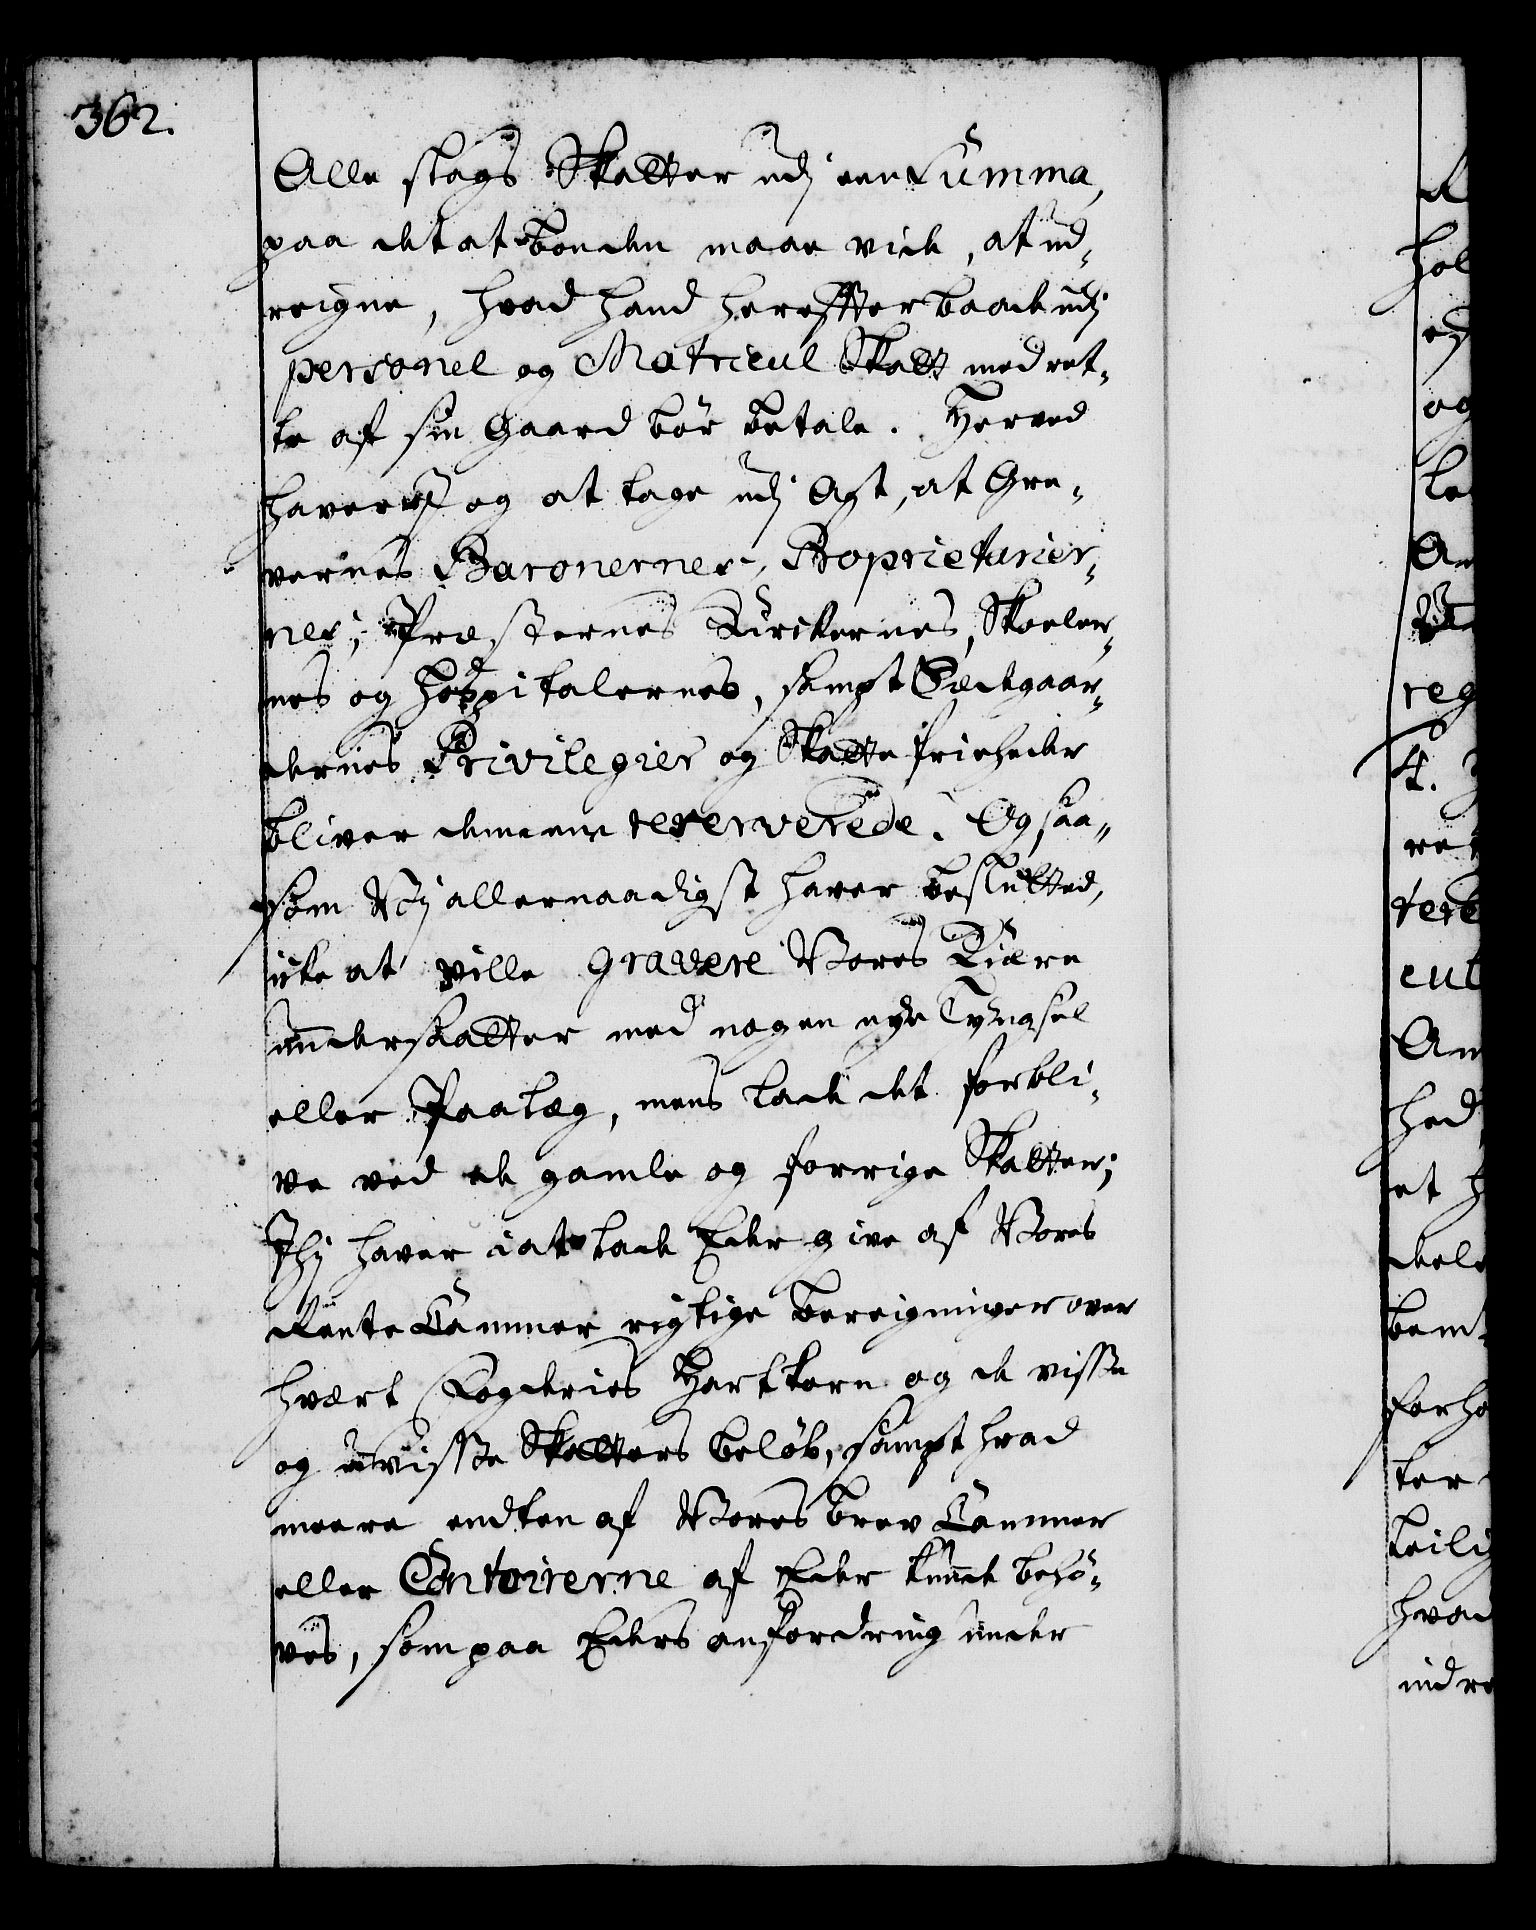 362.
Alle slags Skatter udj een Summa,
paa det at bonden maae vide, at ud-
reigne, hvad hand herefter baade udj
personel og Matricul Skatt med ret-
te af sin Gaard bör betale. Herved
haver og at tage udj Agt, at Gre-
vernes Baronernes, Proprietarier-
nes, Præsternes Kirckernes, Skoeler-
nes og Hospitalernes, sampt Sædegaar-
dernes Privilegier og Skatte friheder
bliver dennem reserverede. Og saa-
som Vj allernaadigst haver beslutted,
icke at ville gravere Vores Kiære
undersaatter med nogen nye Tyngsel
eller Paalæg, mens lade det forbli-
ve ved de gamle og forrige Skatter;
Thj haver i at lade Eder give af Vores
Rente Cammer rigtige beregninger over
hvært Fogderies Hartkorn og de visse
og uvisse Skatters beløb, sampt hvad
meere endten af Vores brev Cammer
eller Contoirerne af Eder kunde behö-
ves, som paa Eders anfordring under
hol
og
reg
4.
cul
hed
et
dele
bem
forho
ter
hvad
indre